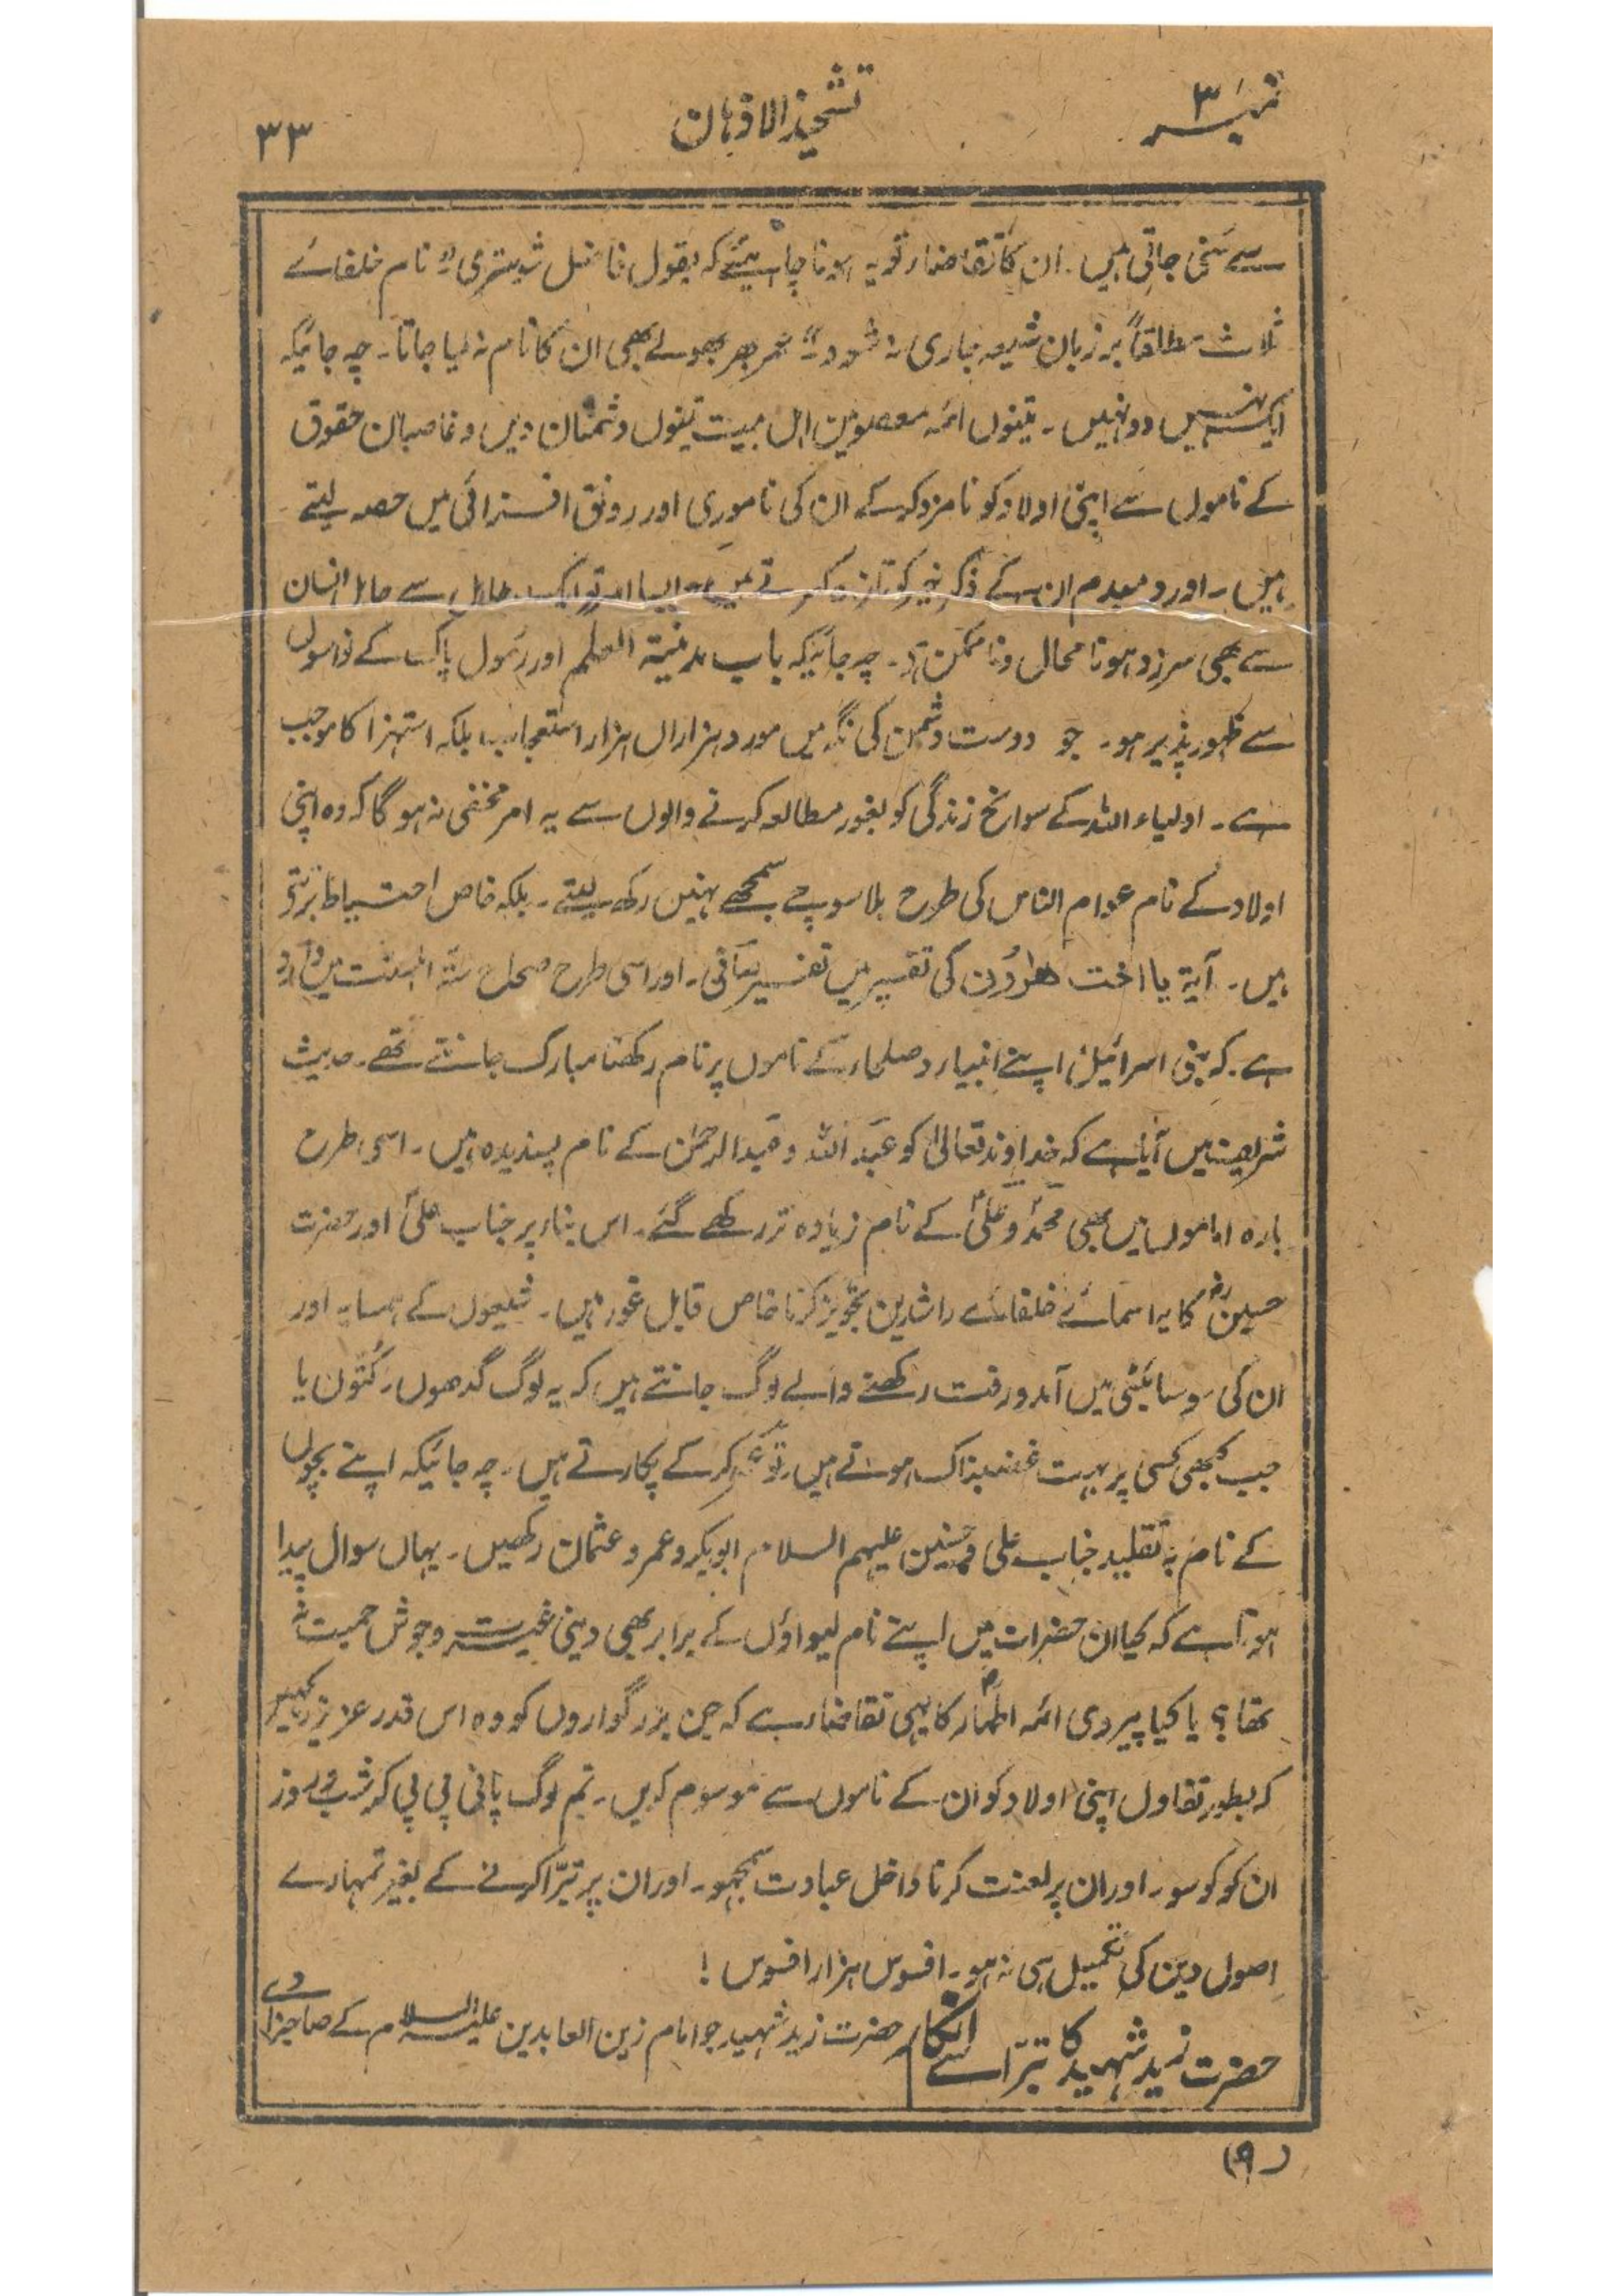 نمبر ۳
تشحیذ الاذہان
۳۳
سے سُنی جاتی ہیں۔ ان کا تقاضا تو یہ ہونا چاہیئے کہ بقول فاضل شوستری "نام خلفائے
ثلاث مطلقاً بر زبان شیعہ جاری نہ شود" عمر بھر بھولے بھی ان کا نام نہ لیا جاتا۔ چہ جائیکہ
ایک نہیں دو نہیں۔ تینوں ائمہ معصومین اہل بیت تینوں دشمنان دین و غاصبان حقوق
کے ناموں سے اپنی اولاد کو نامزد کر کے ان کی ناموری اور رونق افزائی میں حصہ لیتے
ہیں۔ اور دمبدم ان کے ذکر خیر کو تازہ کرتے ہیں۔ ایسا امر تو ایک جاہل سے جاہل انسان
سے بھی سرزد ہونا محال و ناممکن ہے۔ چہ جائیکہ باب مدینۃ العلم اور رسول پاک کے نواسوں
سے ظہور پذیر ہو۔ جو دوست دشمن کی نگہ میں مورد ہزاراں ہزار استعجاب بلکہ استہزا کا موجب
ہے۔ اولیاء اللہ کے سوانح زندگی کو بغور مطالعہ کرنے والوں سے یہ امر مخفی نہ ہو گا کہ وہ اپنی
اولاد کے نام عوام الناس کی طرح بلا سوچے سمجھے نہیں رکھ لیتے۔ بلکہ خاص احتیاط برتتے
ہیں۔ آیۃ یا اخت ھٰرُوْن کی تفسیر میں تفسیر صافی۔ اور اسی طرح صحاح ستہ اہلسنت میں وارد
ہے۔ کہ بنی اسرائیل اپنے انبیاء و صلحاء کے ناموں پر نام رکھنا مبارک جانتے تھے۔ حدیث
شریف میں آیا ہے کہ خداوند تعالیٰ کو عبد اللہ و عبد الرحمٰن کے نام پسندیدہ ہیں۔ اسی طرح
بارہ اماموں میں بھی محمدؐ و علیؑ کے نام زیادہ تر رکھے گئے۔ اس بناء پر جناب علیؑ اور حضرت
حسینؓ کا یہ اسمائے خلفائے راشدین تجویز کرنا خاص قابل غور ہیں۔ شیعوں کے ہمسایہ اور
ان کی سوسائیٹی میں آمدورفت رکھنے والے لوگ جانتے ہیں کہ یہ لوگ گدھوں۔ کُتّوں یا
جب کبھی کسی پر بہت غضبناک ہوتے ہیں۔ تو عمر کر کے پکارتے ہیں۔ چہ جائیکہ اپنے بچوں
کے نام بہ تقلید جناب علی و حسنین علیہم السلام ابوبکر و عمر و عثمان رکھیں۔ یہاں سوال پیدا
ہوتا ہے کہ کیا ان حضرات میں اپنے نام لیواؤں کے برابر بھی دینی غیرت و جوش حمیت نہ
تھا؟ یا کیا پیروی ائمہ اطہارؑ کا یہی تقاضا ہے کہ جن بزرگواروں کو وہ اس قدر عزیز رکھیں
کہ بطور تفاول اپنی اولاد کو ان کے ناموں سے موسوم کریں۔ تم لوگ پانی پی پی کر شب و روز
ان کو کوسو۔ اور ان پر لعنت کرنا داخل عبادت سمجھو۔ اور ان پر تبرّا کرنے کے بغیر تمہارے
اصول دین کی تکمیل ہی نہ ہو۔ افسوس ہزار افسوس!
حضرت زید شہید کا تبرّا سے انکار
حضرت زید شہید جو امام زین العابدین علیہ السلام کے صاحبزادے
(۹)